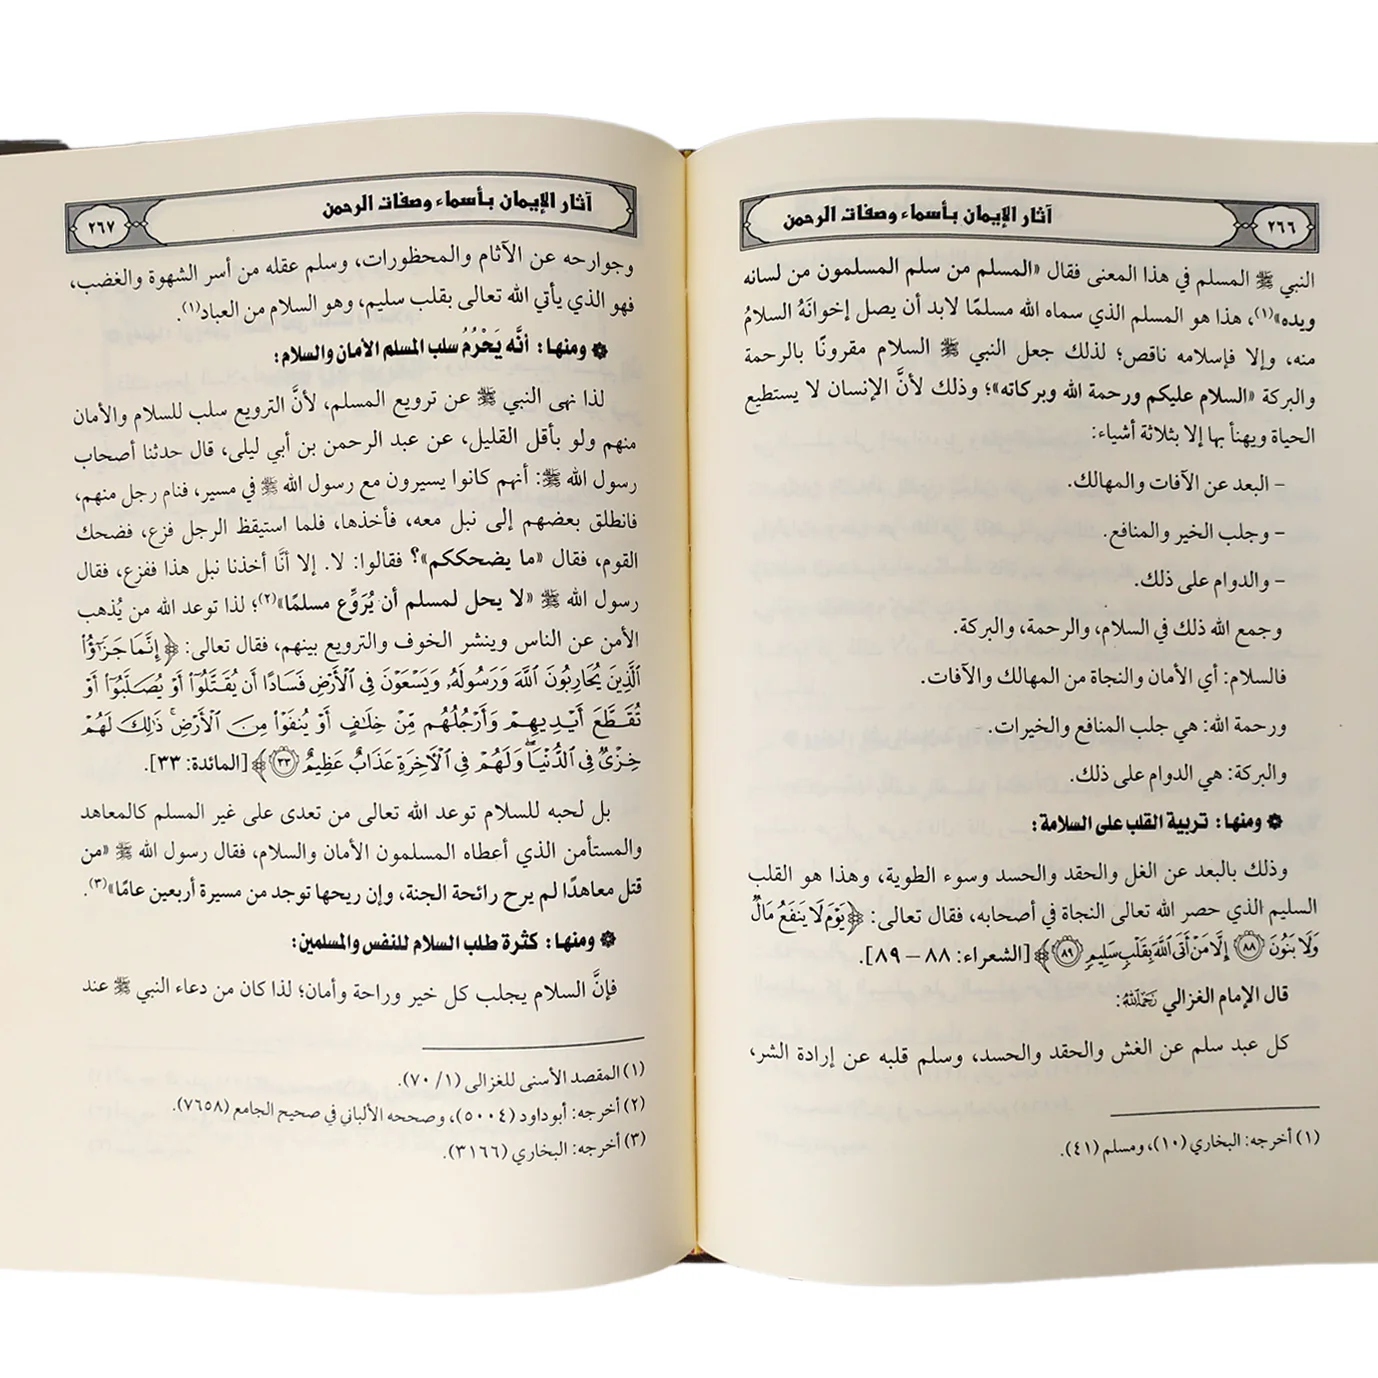 ٢٦٦
آثار الإيمان بأسماء وصفات الرحمن
النبي ﷺ المسلم في هذا المعنى فقال «المسلم من سلم المسلمون من لسانه
ويده»(١)، هذا هو المسلم الذي سماه الله مسلمًا لابد أن يصل إخوانَهُ السلامُ
منه، وإلا فإسلامه ناقص؛ لذلك جعل النبي ﷺ السلام مقرونًا بالرحمة
والبركة «السلام عليكم ورحمة الله وبركاته»؛ وذلك لأنَّ الإنسان لا يستطيع
الحياة ويهنأ بها إلا بثلاثة أشياء:
– البعد عن الآفات والمهالك.
– وجلب الخير والمنافع.
– والدوام على ذلك.
وجمع الله ذلك في السلام، والرحمة، والبركة.
فالسلام: أي الأمان والنجاة من المهالك والآفات.
ورحمة الله: هي جلب المنافع والخيرات.
والبركة: هي الدوام على ذلك.
۞ ومنها: تربية القلب على السلامة:
وذلك بالبعد عن الغل والحقد والحسد وسوء الطوية، وهذا هو القلب
السليم الذي حصر الله تعالى النجاة في أصحابه، فقال تعالى: ﴿يَوْمَ لَا يَنفَعُ مَالٌ
وَلَا بَنُونَ ۝٨٨ إِلَّا مَنْ أَتَى ٱللَّهَ بِقَلْبٖ سَلِيمٖ ۝٨٩﴾ [الشعراء: ٨٨ – ٨٩].
قال الإمام الغزالي رَحِمَهُ ٱللَّهُ:
كل عبد سلم عن الغش والحقد والحسد، وسلم قلبه عن إرادة الشر،
(١) أخرجه: البخاري (١٠)، ومسلم (٤١).
آثار الإيمان بأسماء وصفات الرحمن
٢٦٧
وجوارحه عن الآثام والمحظورات، وسلم عقله من أسر الشهوة والغضب،
فهو الذي يأتي الله تعالى بقلب سليم، وهو السلام من العباد(١).
۞ ومنها: أنَّه يَحْرُمُ سلب المسلم الأمان والسلام:
لذا نهى النبي ﷺ عن ترويع المسلم، لأنَّ الترويع سلب للسلام والأمان
منهم ولو بأقل القليل، عن عبد الرحمن بن أبي ليلى، قال حدثنا أصحاب
رسول الله ﷺ: أنهم كانوا يسيرون مع رسول الله ﷺ في مسير، فنام رجل منهم،
فانطلق بعضهم إلى نبل معه، فأخذها، فلما استيقظ الرجل فزع، فضحك
القوم، فقال «ما يضحككم»؟ فقالوا: لا. إلا أنَّا أخذنا نبل هذا ففزع، فقال
رسول الله ﷺ «لا يحل لمسلم أن يُرَوِّع مسلمًا»(٢)؛ لذا توعد الله من يُذهب
الأمن عن الناس وينشر الخوف والترويع بينهم، فقال تعالى: ﴿إِنَّمَا جَزَٰٓؤُاْ
ٱلَّذِينَ يُحَارِبُونَ ٱللَّهَ وَرَسُولَهُۥ وَيَسْعَوْنَ فِي ٱلْأَرْضِ فَسَادًا أَن يُقَتَّلُوٓاْ أَوْ يُصَلَّبُوٓاْ أَوْ
تُقَطَّعَ أَيْدِيهِمْ وَأَرْجُلُهُم مِّنْ خِلَٰفٍ أَوْ يُنفَوْاْ مِنَ ٱلْأَرْضِۚ ذَٰلِكَ لَهُمْ
خِزْيٌ فِي ٱلدُّنْيَاۖ وَلَهُمْ فِي ٱلْأٓخِرَةِ عَذَابٌ عَظِيمٌ ۝٣٣﴾ [المائدة: ٣٣].
بل لحبه للسلام توعد الله تعالى من تعدى على غير المسلم كالمعاهد
والمستأمن الذي أعطاه المسلمون الأمان والسلام، فقال رسول الله ﷺ «من
قتل معاهدًا لم يرح رائحة الجنة، وإن ريحها توجد من مسيرة أربعين عامًا»(٣).
۞ ومنها: كثرة طلب السلام للنفس والمسلمين:
فإنَّ السلام يجلب كل خير وراحة وأمان؛ لذا كان من دعاء النبي ﷺ عند
(١) المقصد الأسنى للغزالى (١/ ٧٠).
(٢) أخرجه: أبوداود (٥٠٠٤)، وصححه الألباني في صحيح الجامع (٧٦٥٨).
(٣) أخرجه: البخاري (٣١٦٦).